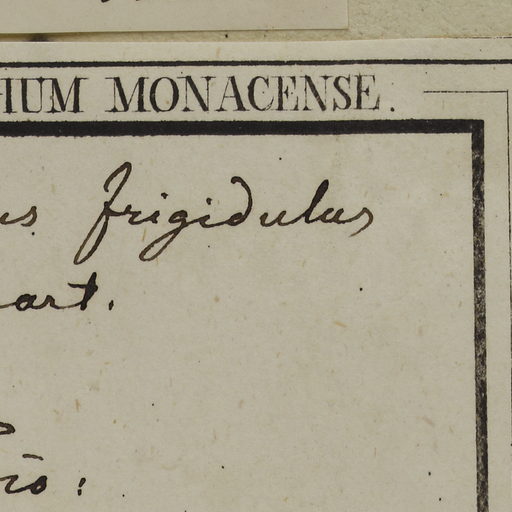 IUM MONACENSE.
us frigidulus
art.
io: